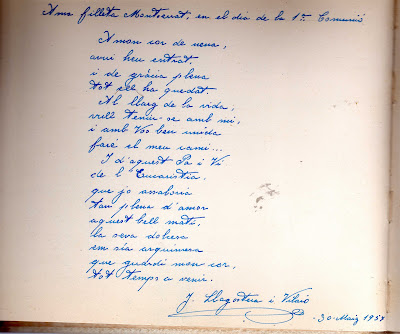 A ma filleta Montserrat, en el dia de la 1ra Comunió
A mon cor de nena,
avui heu entrat,
i de gràcia plena
tot ell ha quedat.
Al llarg de la vida,
vull tenir-se amb mi,
i amb Vos ben unida
faré el meu camí...
I d'aquest Pa i Vi
de l'Eucaristia,
que jo assaboria
tan plena d'amor
aquest bell matí,
la seva dolcesa
em sia
que guardi mon cor,
tot temps a venir.
J. Llagostera i Vilaró
30-Maig 1954